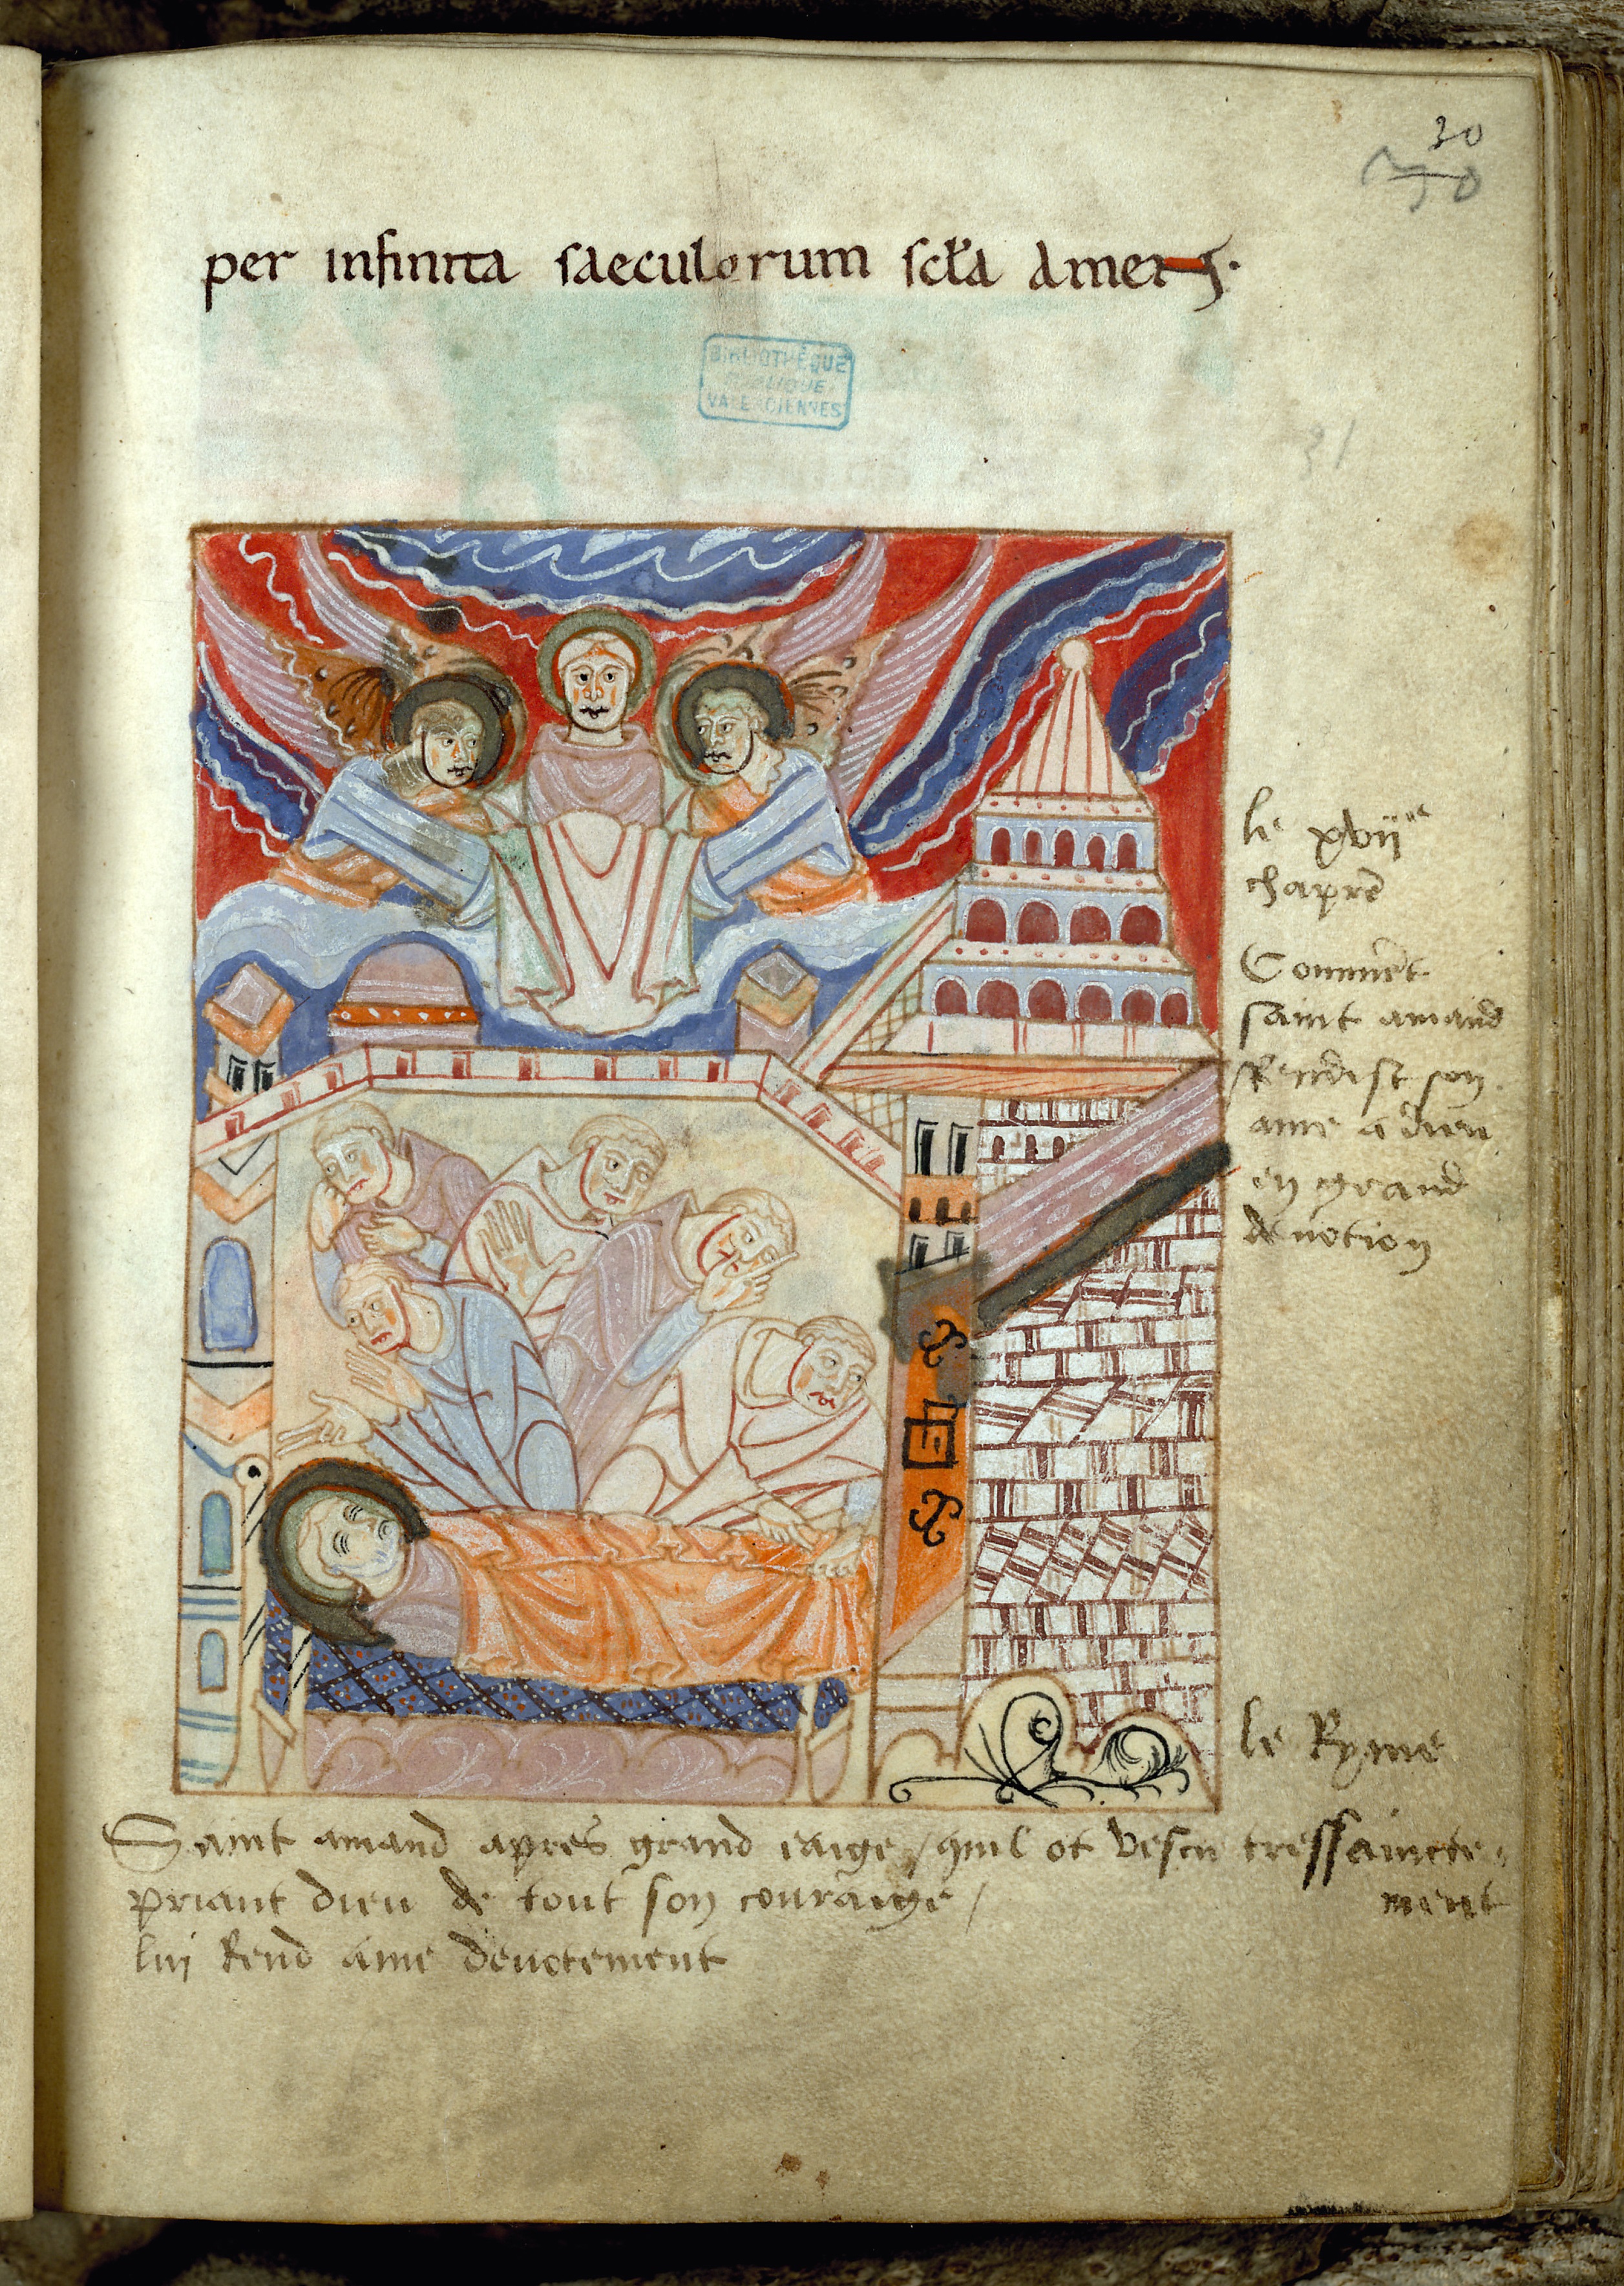 30
30
per infinita saeculorum scła amen·
BIBLIOTHÈQUE
PUBLIQUE
VALENCIENNES
31
le xvije
chapre
Comme͂t
saint amand
Rendist son
ame a dieu
en grand
deuotion
le Ryme
Saint amand apres grand eaige / quil ot vescu tressaincte
ment
priant dieu de tout son couraige /
lui Rend ame deuotement